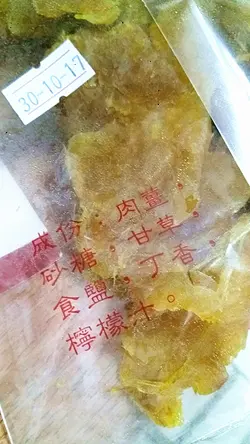 30-10-17
成份：肉薑，
砂糖，甘草，
食鹽，丁香，
檸檬汁。